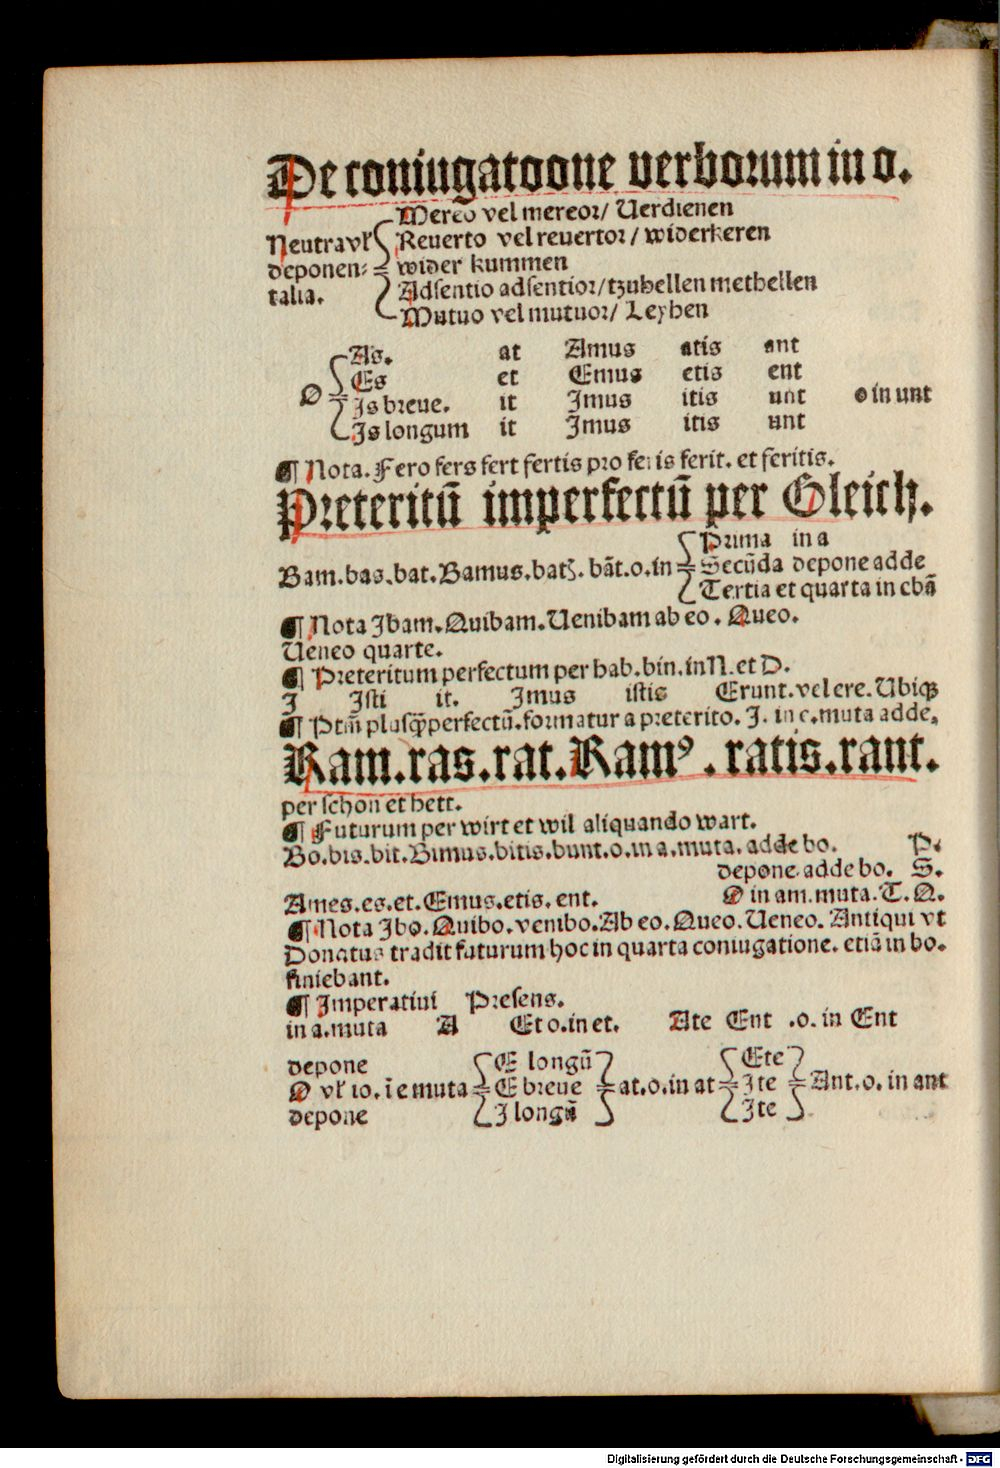 De coniugatoone verborum in o.
Mereo vel mereor/ Uerdienen
Neutra vl' Reuerto vel reuertor/ widerkeren
deponen: wider kummen
talia. Adsentio adsentior/ tzuhellen methellen
Mutuo vel mutuor/ Leyhen
As. at Amus atis ant
Es et Emus etis ent
O Is breue. it Imus itis unt o in unt
Is longum it Imus itis unt
¶ Nota. Fero fers fert fertis pro feris ferit. et feritis.
Preteritū imperfectū per Gleich.
Prima in a
Bam.bas.bat.Bamus.batꝫ.bāt.o.in Secūda depone adde
Tertia et quarta in ebā
¶ Nota Ibam.Quibam.Uenibam ab eo. Queo.
Ueneo quarte.
¶ Preteritum perfectum per hab.bin.in N.et D.
I Isti it. Imus istis Erunt.vel ere.Ubiqꝫ
¶ Ptm̄ plusqꝑfectū.formatur a preterito. I. in e.muta adde.
Ram.ras.rat.Ramꝰ.ratis.rant.
per schon et hett.
¶ Futurum per wirt et wil aliquando wart.
Bo.bis.bit.Bimus.bitis.bunt.o.in a.muta.adde bo. P.
depone adde bo. S.
Ames.es.et.Emus.etis.ent. O in am.muta.T.Q.
¶ Nota Ibo.Quibo.venibo.Ab eo.Queo.Ueneo. Antiqui vt
Donatus tradit futurum hoc in quarta coniugatione.etiā in bo.
finiebant.
¶ Imperatiui Presens.
in a.muta A Et o.in et. Ate Ent .o. in Ent
depone E longū Ete
O vl' io.ī e muta E breue at.o.in at Ite Ant.o.in ant
depone I longū Ite
Digitalisierung gefördert durch die Deutsche Forschungsgemeinschaft - DFG